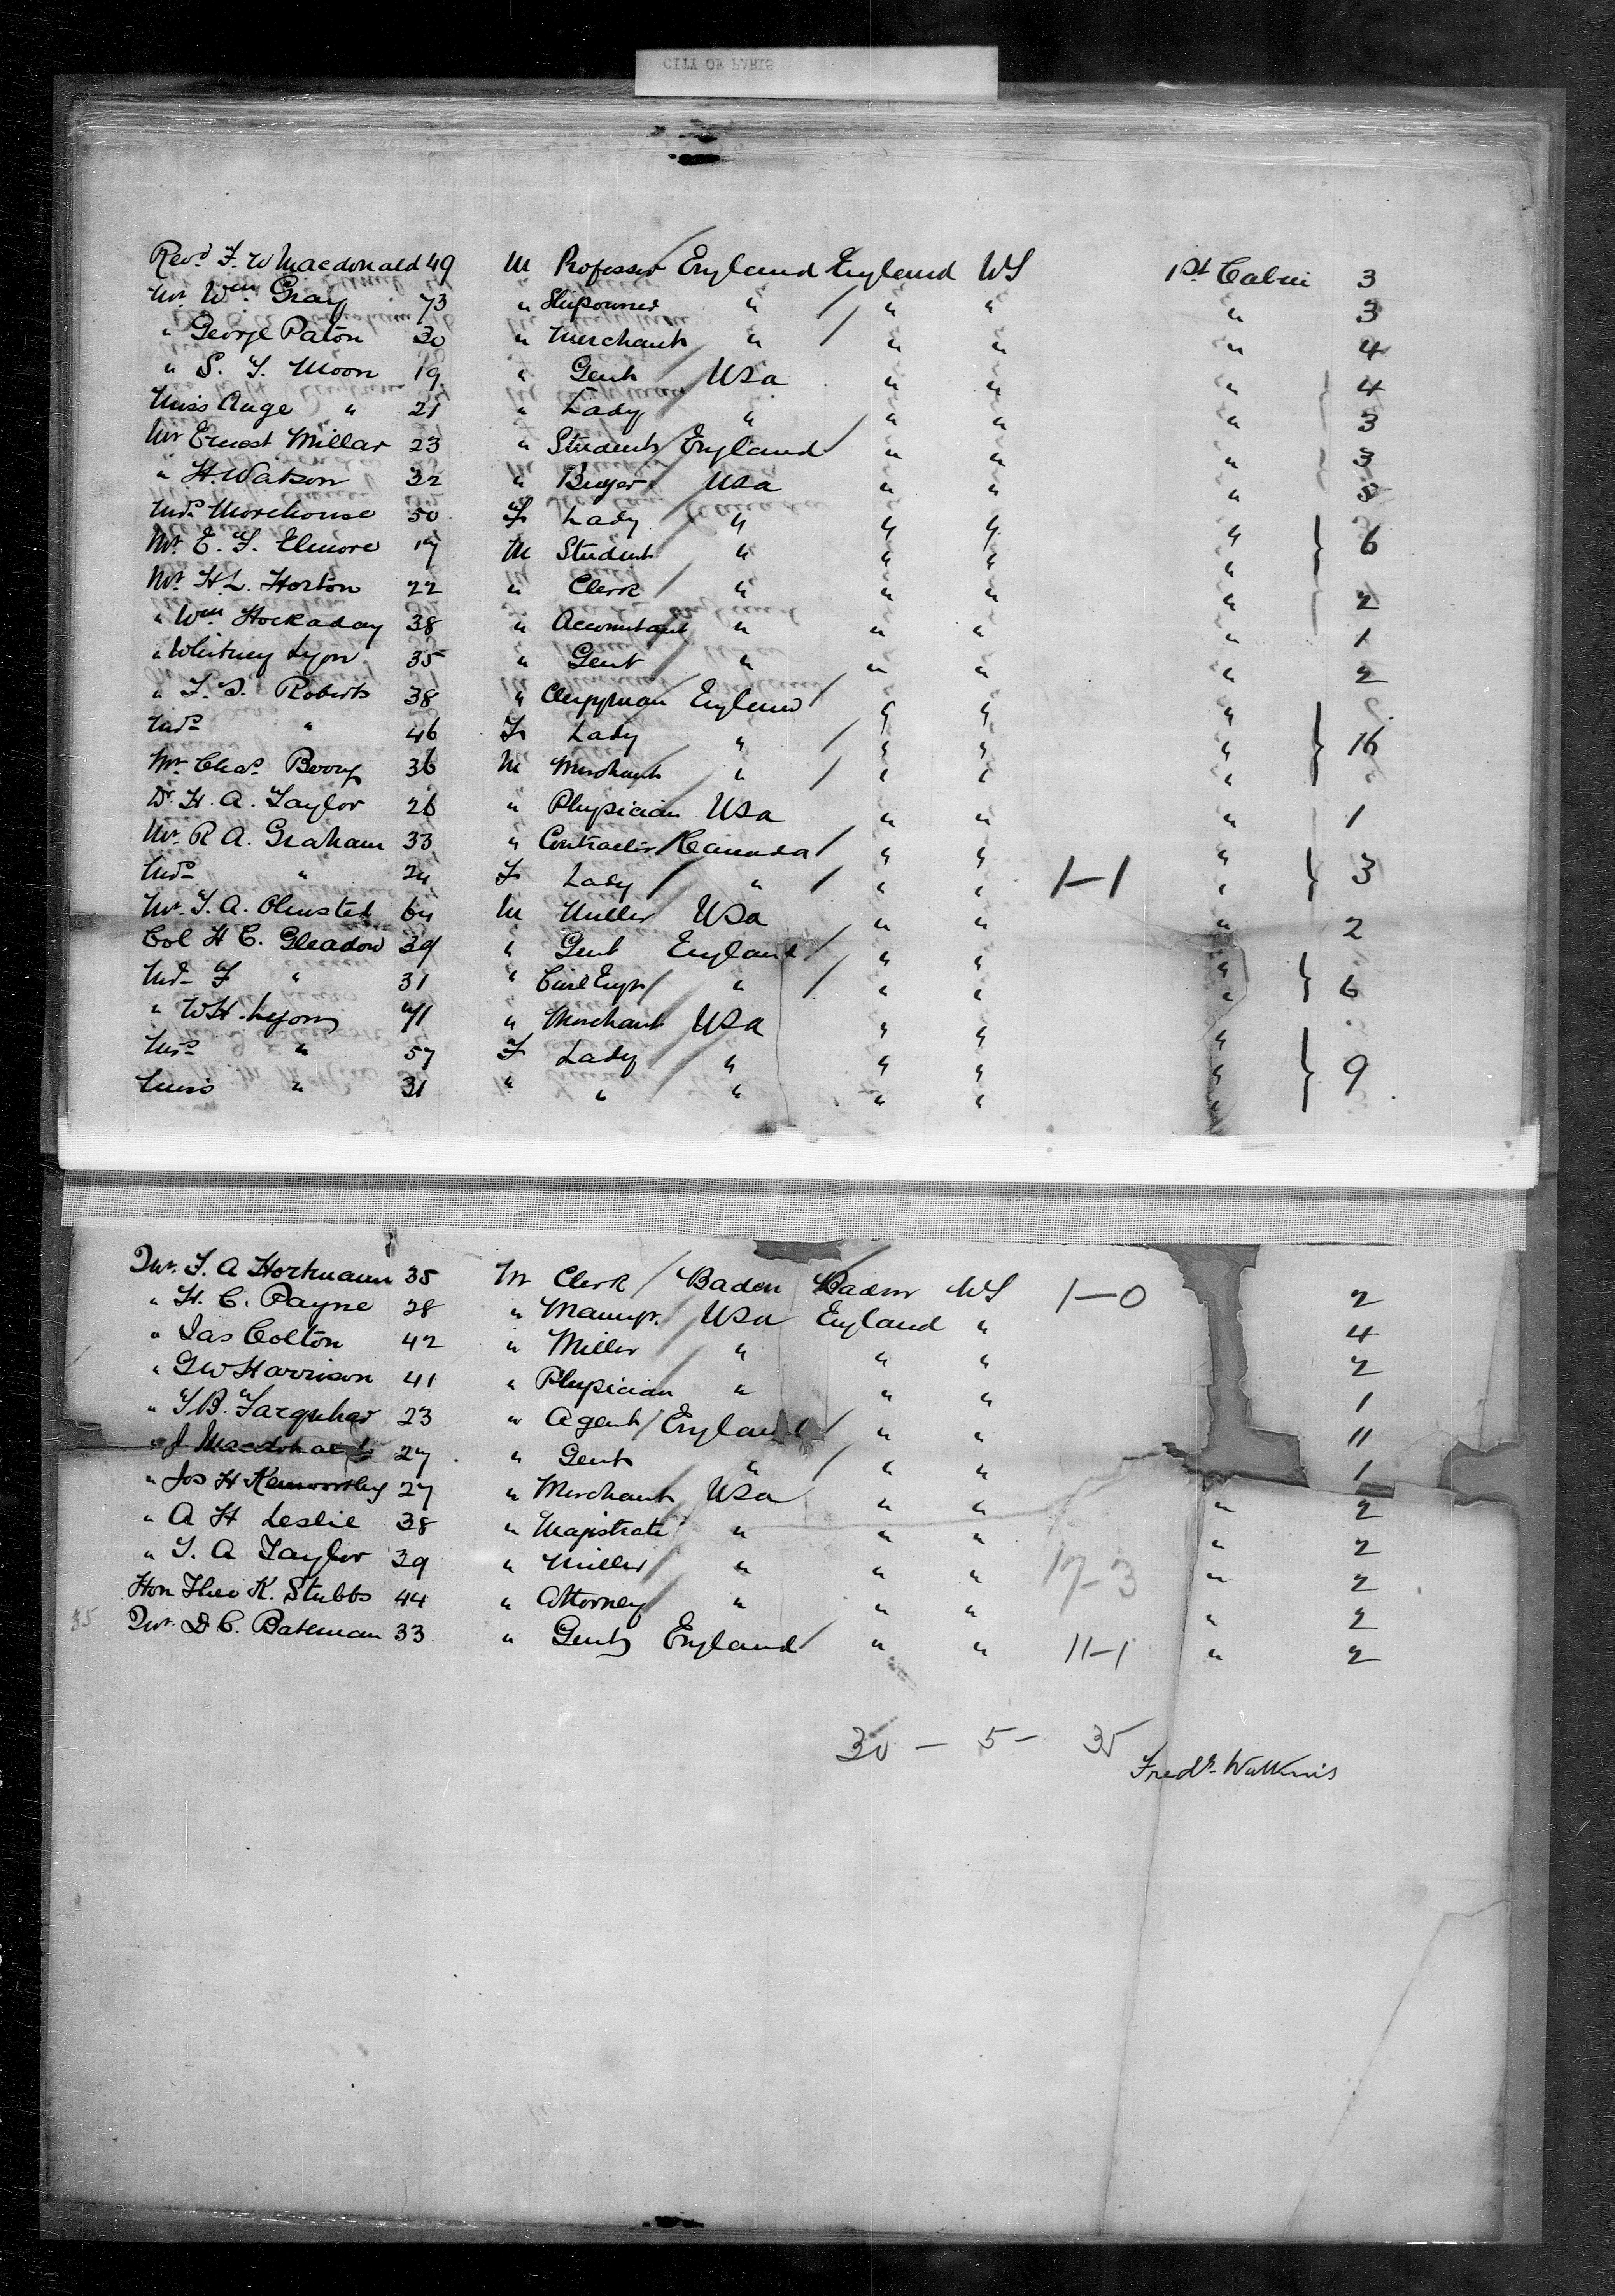 CITY OF PARIS
Revd F. W Macdonald 49 M Professor England England US 1st Cabin 3
Mr Wm Gray 73 " Shipowner " " " " 3
" George Paton 30 " Merchant " " " " 4
" S. F. Moon 19 " Gent USA " " " 4
Miss Ange " 21 " Lady " " " " 3
Mr Ernest Millar 23 " Student England " " " 3
" H. Watson 32 " Buyer USA " " "
Mrs Morehouse 50 F Lady " " " " 6
Mr E. F. Elmore 17 M Student " " " "
Mr H. L. Horton 22 " Clerk " " " " 2
" Wm Hockaday 38 " Accountant " " " " 1
" Whitney Lyon 35 " Gent " " " " 2
" F. S. Roberts 38 " Clergyman England " " " 16
Mrs " 46 F Lady " " " "
Mr Chas. Berry 36 M Merchant " " " "
Dr H. A. Taylor 26 " Physician USA " " " 1
Mr R A. Graham 33 " Contractor Canada " " " 3
Mrs " 24 F Lady " " " 1-1 "
Mr F. A. Olmsted 64 M Miller USA " " " 2
Col H C. Gleadow 39 " Gent England " " " 6
F " 31 " Civil Engr " " " "
" W H. Lyon 71 " Merchant USA " " " 9
Mrs " 57 F Lady " " " "
Miss " 31 " " " " " "
Mr. F. A Hortmann 35 M Clerk Baden Baden US 1-0 2
" H. C. Payne 28 " Manuyr. USA England " 4
" Jas Colton 42 " Miller " " " 2
" G W Harrison 41 " Physician " " " 1
" F B. Farquhar 23 " Agent England " " 11
" J Macdonald 27 " Gent " " " 1
" Jos H Kenworthy 27 " Merchant USA " " " 2
" A H Leslie 38 " Magistrate " " " " 2
" F. A Taylor 39 " Miller " " " 17-3 " 2
Hon Theo K. Stubbs 44 " Attorney " " " " 2
35 Mr. D C. Bateman 33 " Gent England " " 11-1 " 2
30 - 5 - 35
Fredk. Watkins